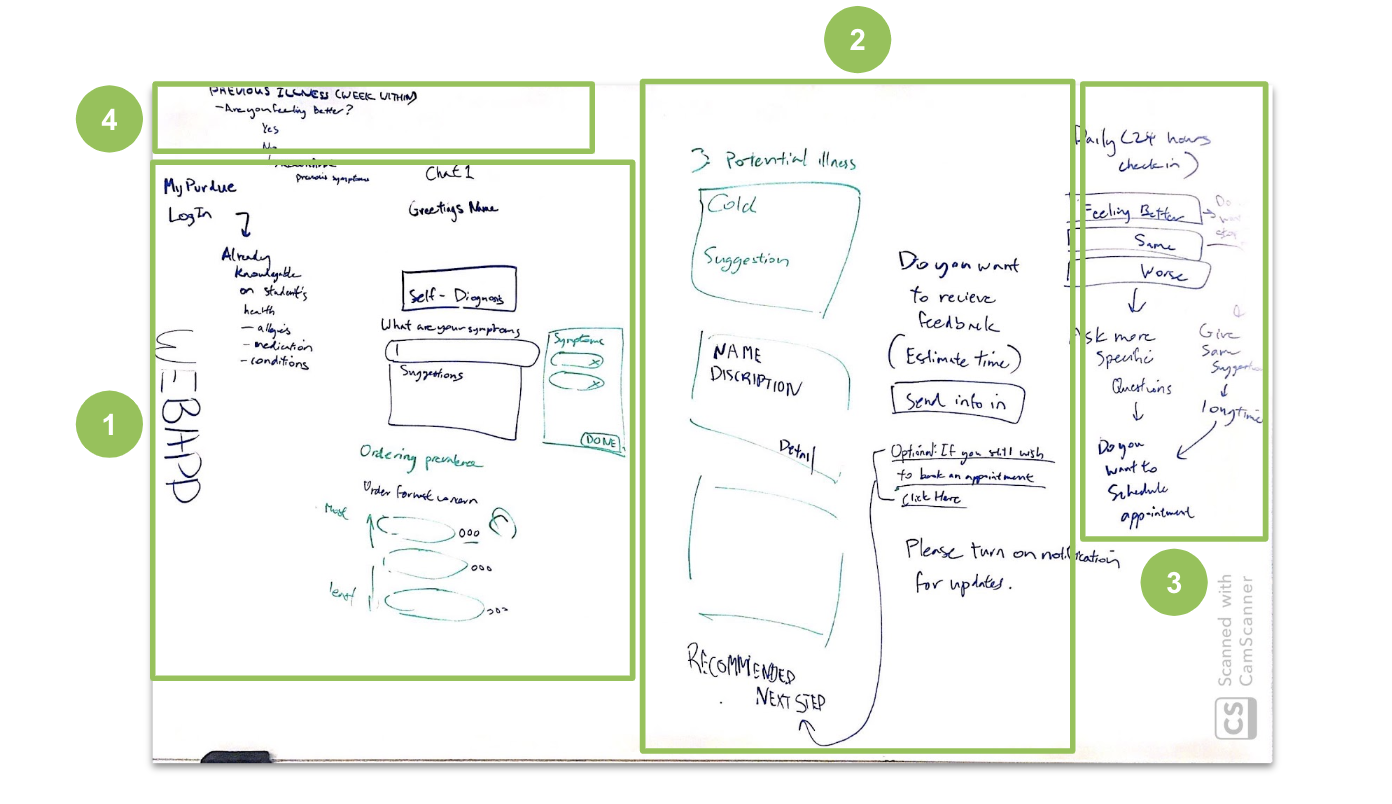 4
PREVIOUS ILLNESS (WEEK WITHIN)
- Are you feeling Better?
Yes
No
previous symptoms
1
MyPurdue
LogIn
Already
knowlegable
on student's
health
- allergies
- medication
- conditions
WEBAPP
Chat 1
Greetings Name
Self - Diagnosis
What are your symptoms
Suggestions
Symptoms
x
x
DONE
Ordering prevalence
Order for most concern
Most
least
2
3 Potential illness
Cold
Suggestion
NAME
DISCRIPTION
Detail
RECOMMENDED
NEXT STEP
Do you want
to recieve
feedback
(Estimate time)
Send info in
Optional: If you still wish
to book an appointment
Click Here
Please turn on notification
for updates.
3
Daily (24 hours
check in)
Feeling Better
Same
Worse
Do
Ask more
Specific
Questions
Do you
want to
Schedule
appointment
Give
Same
longtime
CS
Scanned with
CamScanner